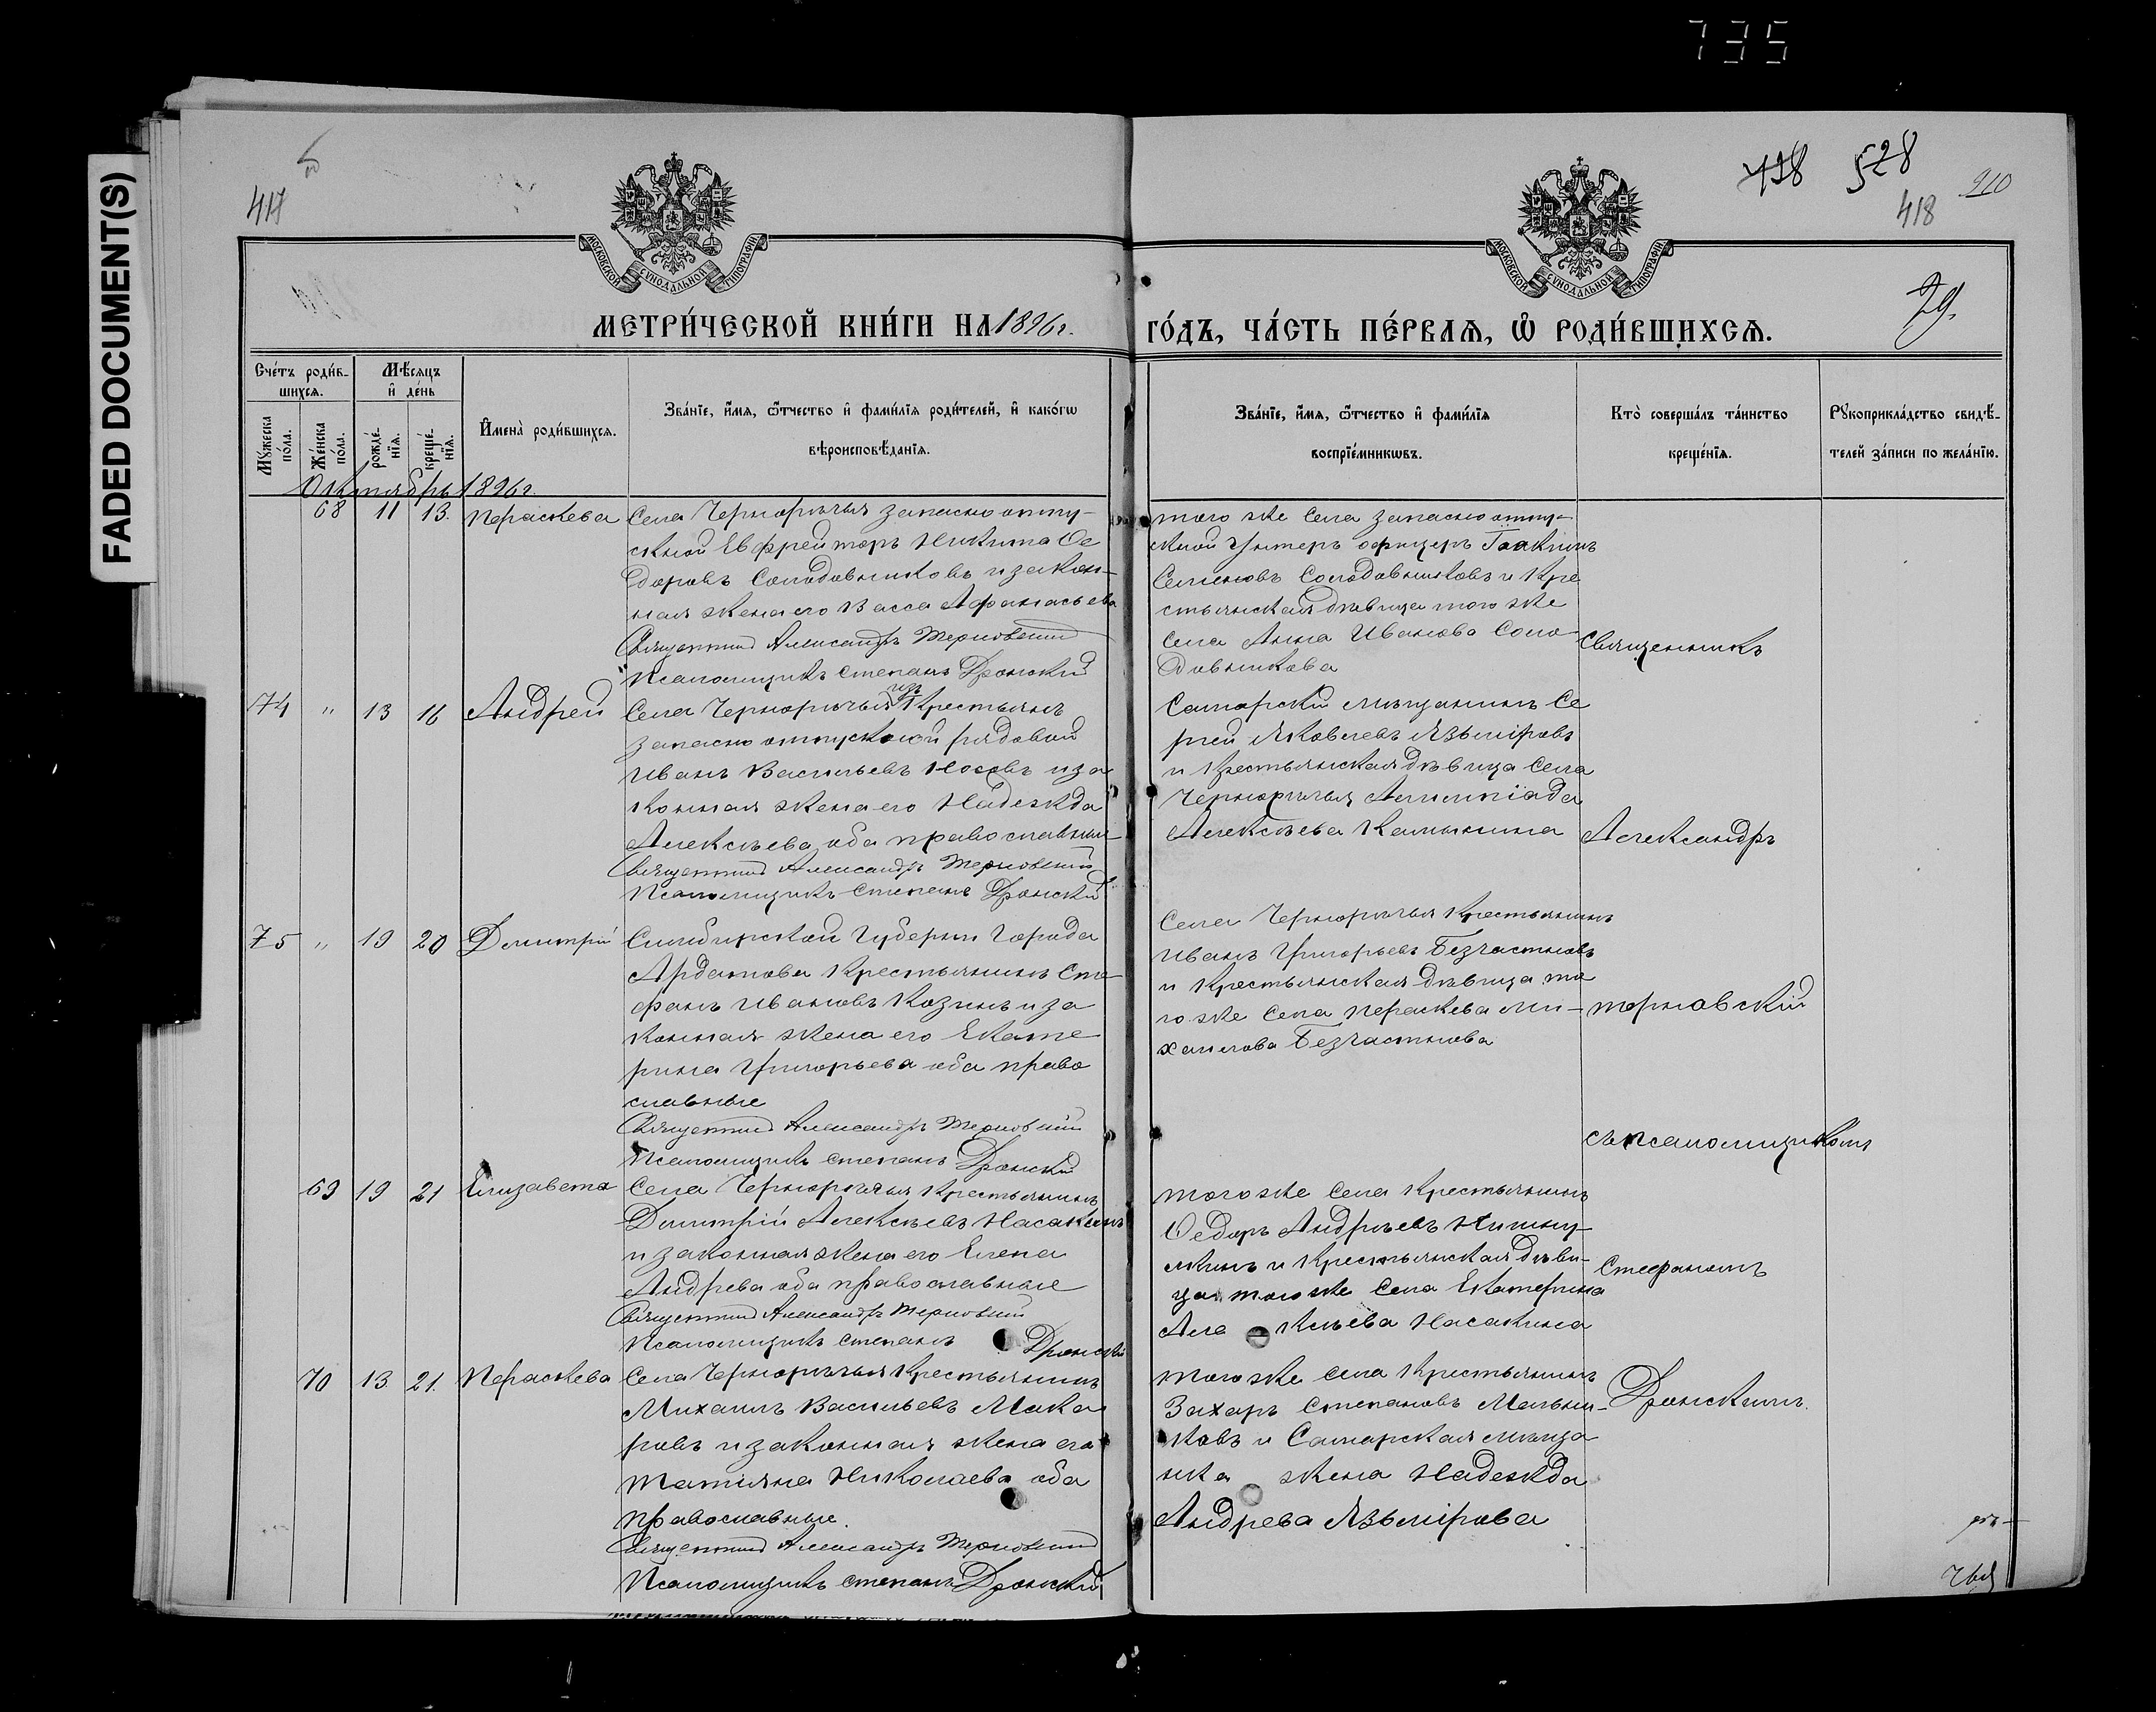 735
FADED DOCUMENT(S)
417
528
418
910
29.
МОСКОВСКОЙ СУНОДАЛЬНОЙ ТИПОГРАФІИ
МОСКОВСКОЙ СУНОДАЛЬНОЙ ТИПОГРАФІИ
МЕТРИ́ЧЕСКОЙ КНИ́ГИ НА 1896 г.
ГО́ДЪ, ЧА́СТЬ ПЕ́РВАѦ, Ѽ РОДИ́ВШИХСѦ.
Сче́тъ роди́в-
шихсѧ.
Мѣ́сѧцъ
и҆ де́нь
Мꙋ́жеска
по́ла.
Же́нска
по́ла.
рожде́-
нїѧ.
креще́-
нїѧ.
И҆мена̀ роди́вшихсѧ.
Зва́нїе, и҆́мѧ, ѻ҆́тчество и҆ фами́лїѧ роди́телей, и҆ како́гѡ
вѣроисповѣ́данїѧ.
Зва́нїе, и҆́мѧ, ѻ҆́тчество и҆ фами́лїѧ
воспрїе́мникѡвъ.
Кто̀ соверша́лъ та́инство
креще́нїѧ.
Рꙋкоприкла́дство свидѣ́-
телей за́писи по жела́нїю.
Октябрь 1896 г.
68 11 13. Пераскева
Села Чернорѣчья запасно отпу-
скной Евфрейторъ Никита Ѳе
доровъ Солодовниковъ и закон-
ная жена его Васса Афанасьева
Священникъ Александръ Терновскій
Псаломщикъ Степанъ Дронскій
того же села запасно отпу-
скной Унтеръ офицеръ Іоакимъ
Семеновъ Солодовниковъ и Кре
стьянская дѣвица того же
села Анна Иванова Соло
довникова
74 " 13 16 Андрей
Села Чернорѣчья изъ Крестьянъ
запасно отпускной рядовой
Иванъ Васильевъ Носовъ и за
конная жена его Надежда
Алексѣева оба православные
Священникъ Александръ Терновскій
Псаломщикъ Степанъ Дронскій
Самарскій мѣщанинъ Се
ргей Яковлевъ Язвміровъ
и Крестьянская дѣвица Села
Чернорѣчья
Алексѣева Калыкина
75 " 19 20 Димитрій
Симбирской Губерніи Города
Ардатова Крестьянинъ Сте
фанъ Ивановъ Козинъ и за
конная жена его Екате
рина Григорьева оба право
славные
Священникъ Александръ Терновскій
Псаломщикъ Степанъ Дронскій
Села Чернорѣчья Крестьянинъ
Иванъ Григорьевъ Безчастновъ
и Крестьянская дѣвица то
го же села Пераскева Ми-
хаилова Безчастнова
69 19 21 Елизавета
Села Чернорѣчья Крестьянинъ
Димитрій Алексѣевъ Насакинъ
и законная жена его Елена
Андрева оба православные
Священникъ Александръ Терновскій
Псаломщикъ Степанъ Дронскій
того же села Крестьянинъ
Ѳедоръ Андрѣевъ
и Крестьянская дѣви-
ца того же села Екатерина
Але ксѣева Насакина
70 13 21. Пераскева
Села Чернорѣчья Крестьянинъ
Михаилъ Васильевъ Мака
ровъ и законная жена его
Татіяна Николаева оба
православные.
Священникъ Александръ Терновскій
Псаломщикъ Степанъ Дронскій
того же села Крестьянинъ
Захаръ Степановъ Мельни-
ковъ и Самарская мѣща
нка жена Надежда
Андрева Язвмірова
Священникъ
Александръ
Терновскій
съ псаломщикомъ
Стефаномъ
Дронскимъ.